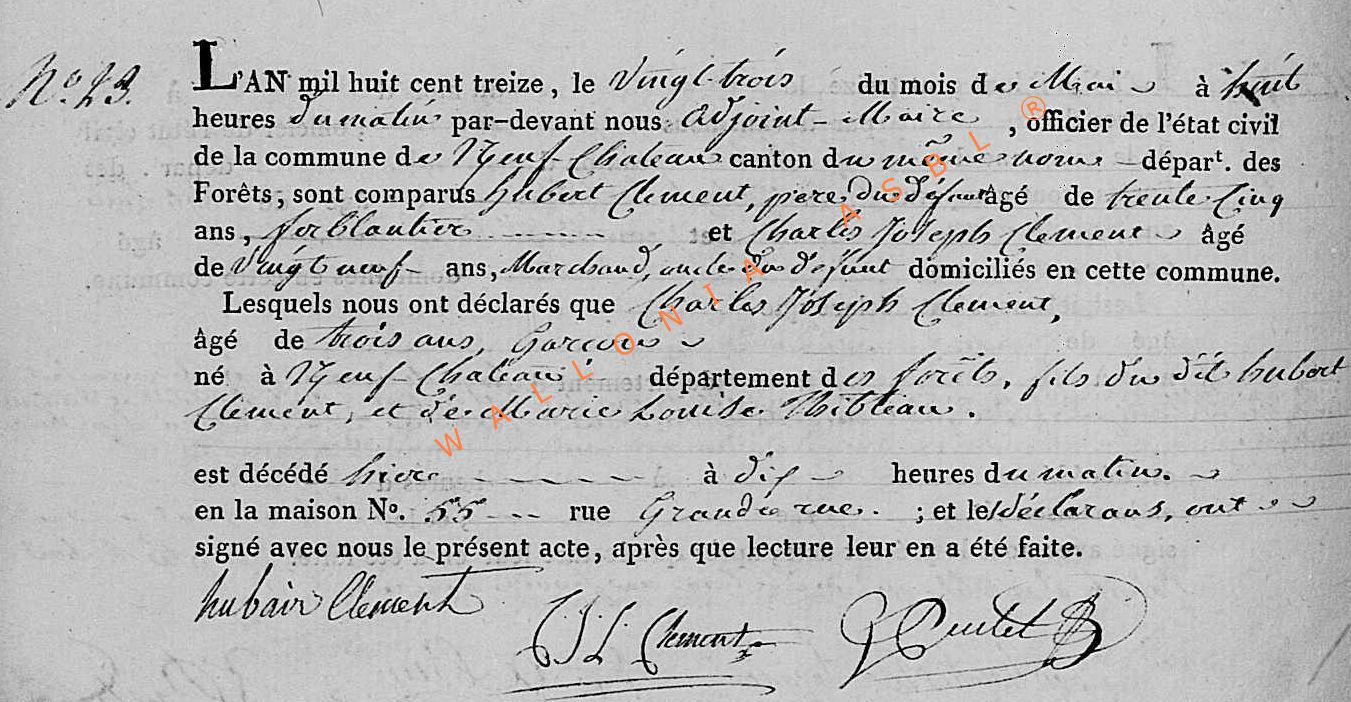 No. 23.
L'AN mil huit cent treize, le Vingt-trois du mois de Mai à huit
heures du matin par-devant nous Adjoint-Maire, officier de l'état civil
de la commune de Neuf-Chateau canton du même nom départ. des
Forêts, sont comparus hubert Clement, pere du défunt âgé de trente Cinq
ans, ferblantier et Charles Joseph Clement âgé
de Vingt neuf ans, Marchand, oncle du défunt domiciliés en cette commune.
Lesquels nous ont déclarés que Charles Joseph Clement,
âgé de trois ans, Garcon
né à Neuf-Chateau département des forêts, fils du dit hubert
Clement, et de Marie Louise Thibleau.
est décédé hier à dix heures du matin.
en la maison No. 55 rue Grande rue. ; et les déclarans, ont
signé avec nous le présent acte, après que lecture leur en a été faite.
hubair Clement
Clement
WALLONIA ASBL ®